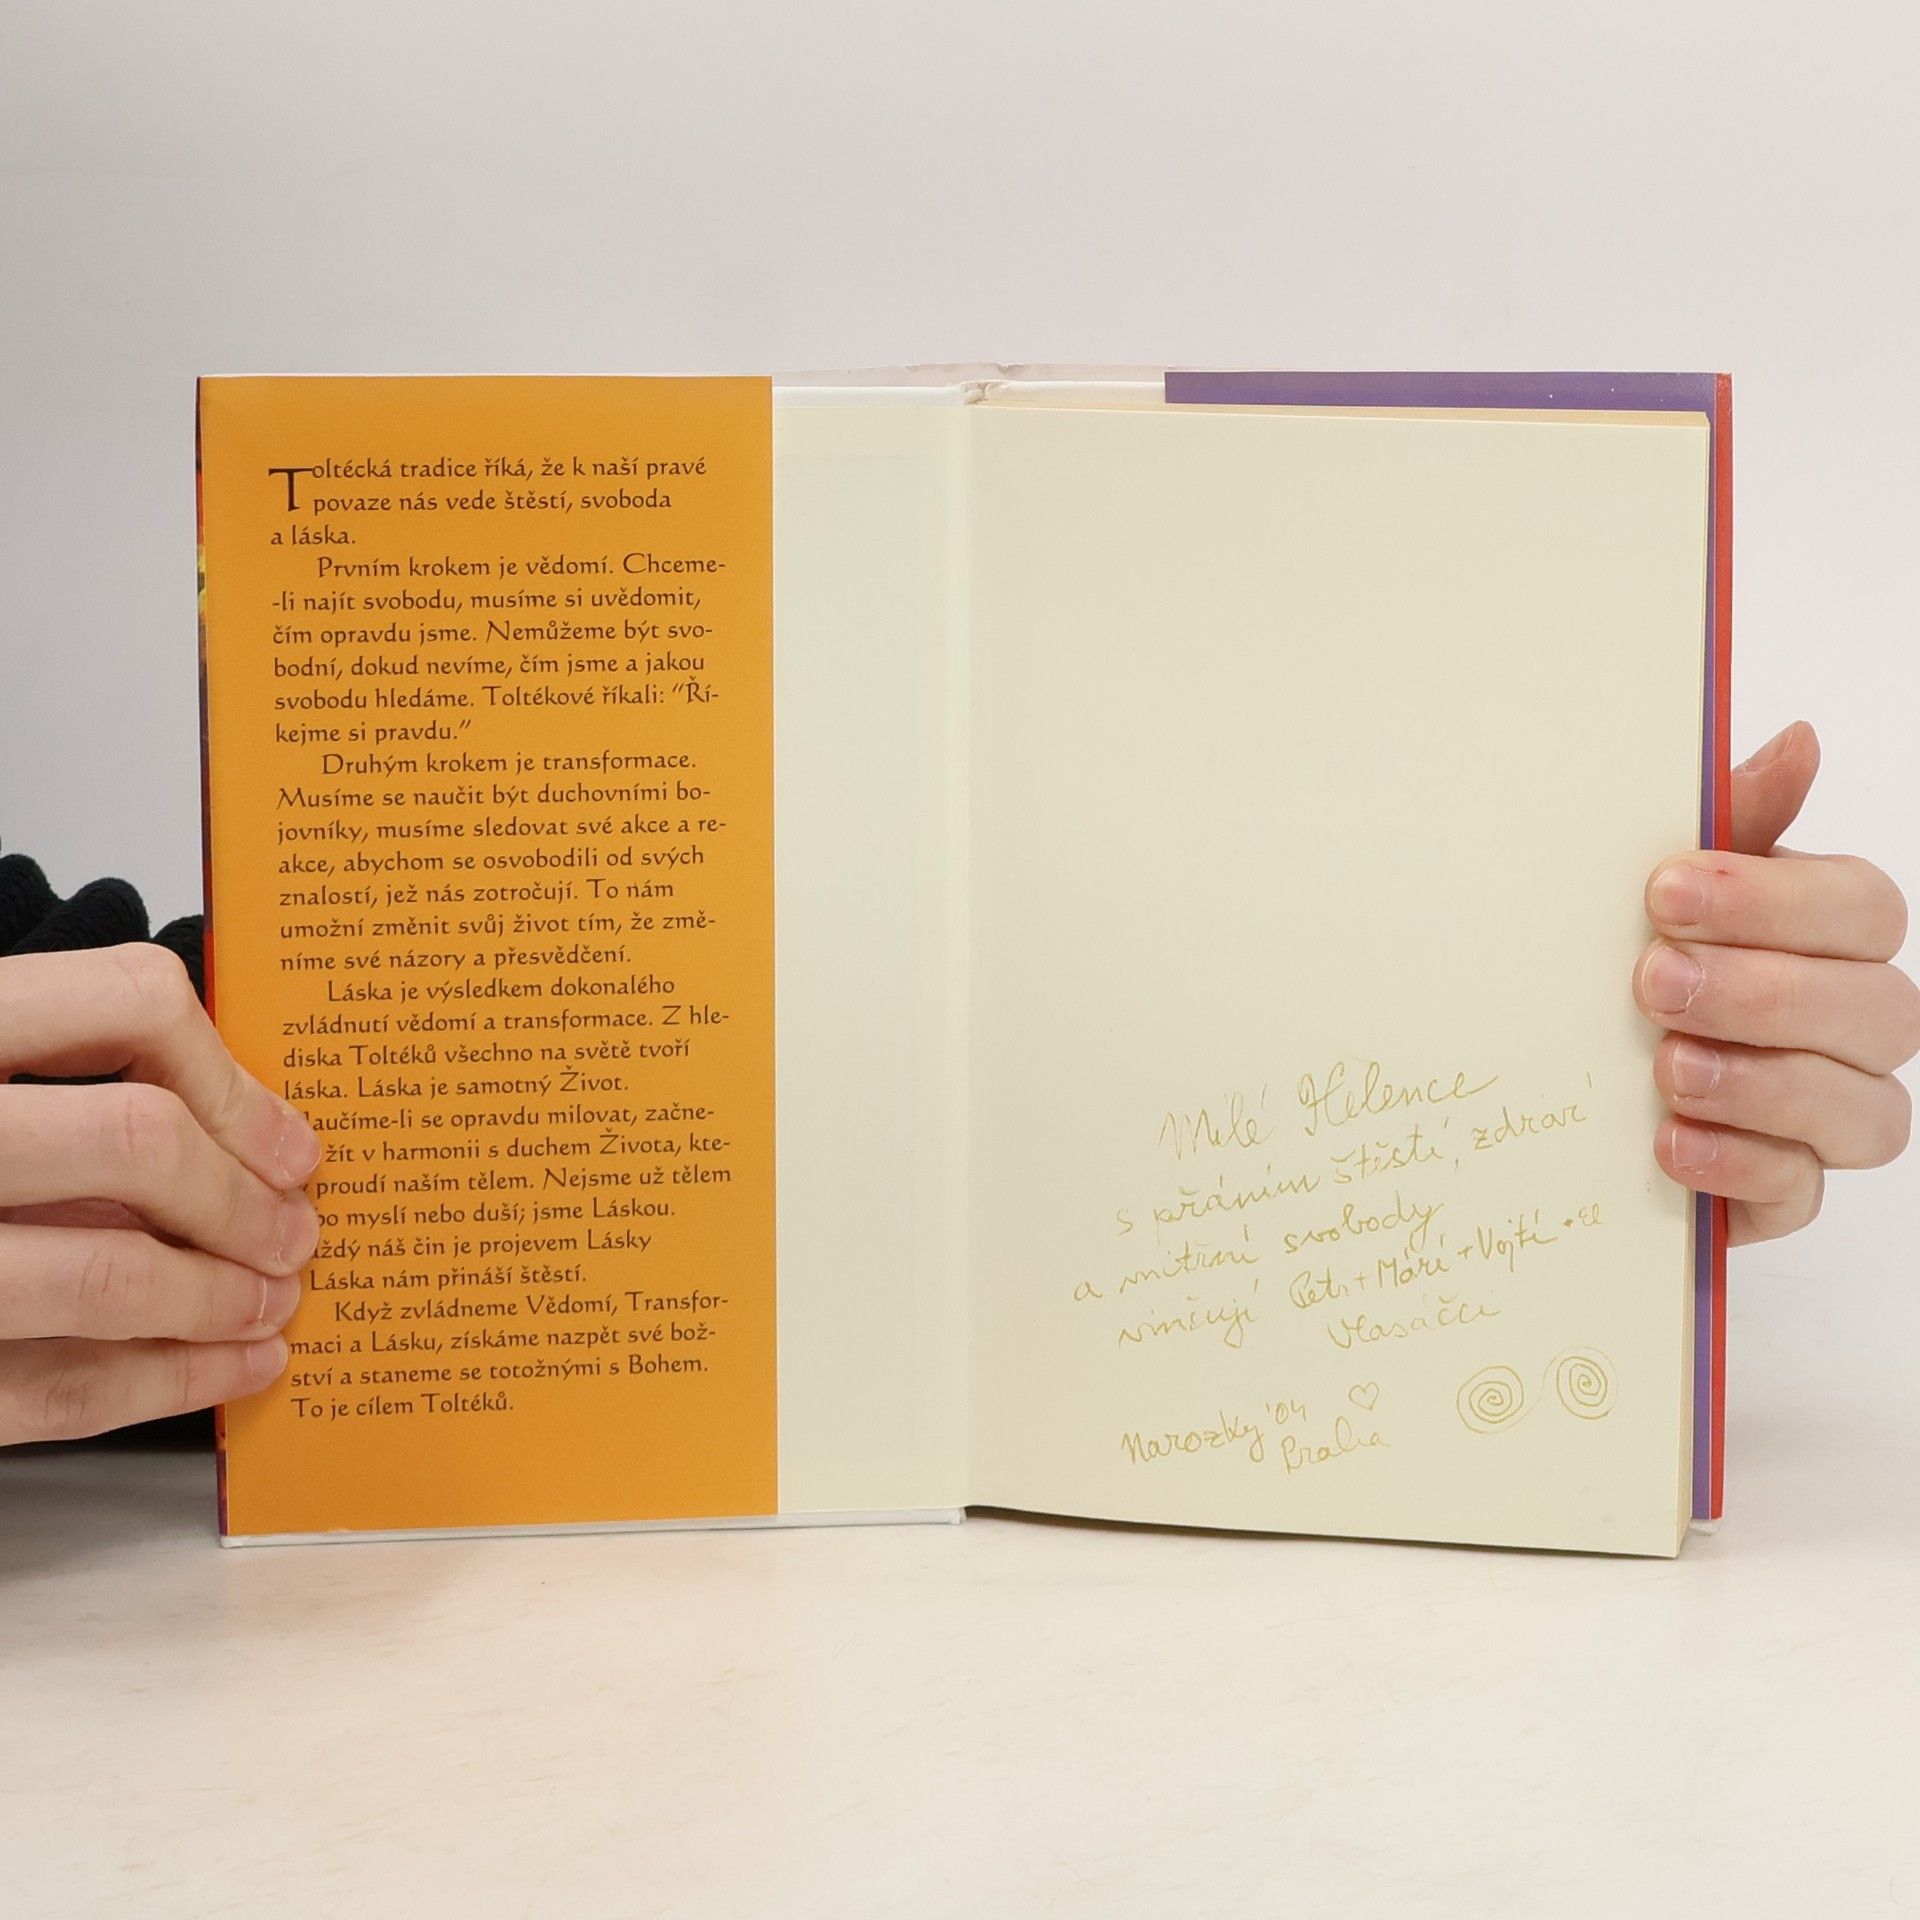 Toltécká tradice říká, že k naší pravé
povaze nás vede štěstí, svoboda
a láska.
Prvním krokem je vědomí. Chceme-
-li najít svobodu, musíme si uvědomit,
čím opravdu jsme. Nemůžeme být svo-
bodní, dokud nevíme, čím jsme a jakou
svobodu hledáme. Toltékové říkali: “Ří-
kejme si pravdu.”
Druhým krokem je transformace.
Musíme se naučit být duchovními bo-
jovníky, musíme sledovat své akce a re-
akce, abychom se osvobodili od svých
znalostí, jež nás zotročují. To nám
umožní změnit svůj život tím, že změ-
níme své názory a přesvědčení.
Láska je výsledkem dokonalého
zvládnutí vědomí a transformace. Z hle-
diska Toltéků všechno na světě tvoří
láska. Láska je samotný Život.
aučíme-li se opravdu milovat, začne-
žít v harmonii s duchem Života, kte-
proudí naším tělem. Nejsme už tělem
bo myslí nebo duší; jsme Láskou.
aždý náš čin je projevem Lásky
Láska nám přináší štěstí.
Když zvládneme Vědomí, Transfor-
maci a Lásku, získáme nazpět své bož-
ství a staneme se totožnými s Bohem.
To je cílem Toltéků.
Milé Helence
s přáním štěstí, zdraví
a vnitřní svobody
vinšují Petr + Máří + Vojtí
Vlasáčci
Narozky '04
Praha